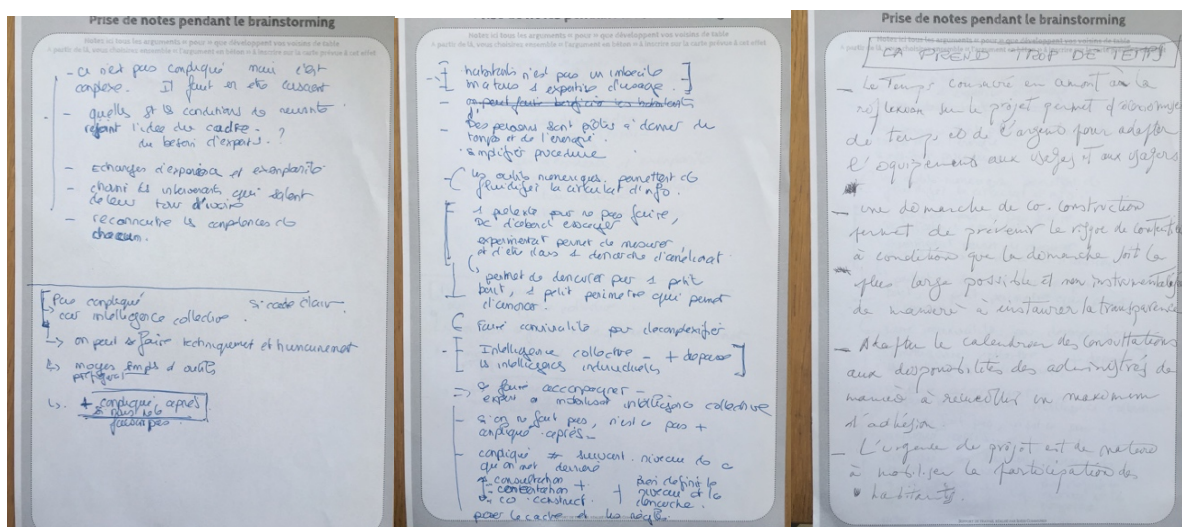 Prise de notes pendant le brainstorming
Notez ici tous les arguments « pour » que développent vos voisins de table
A partir de là, vous choisirez ensemble « l'argument en béton » à inscrire sur la carte prévue à cet effet
- Ce n'est pas compliqué mais c'est
complexe. Il faut en être conscient
- quelles st les conditions de réussite
rejoint l'idée du cadre. ?
du besoin d'experts.
- Echanges d'expérience et exemplarité
- choisir les intervenants qui sortent
de leur tour d'ivoire
- reconnaitre les compétences de
chacun.
Pas compliqué si cadre clair.
car intelligence collective.
-> on peut le faire techniquement et humainement
moyens simples d'outils
+ compliqué après
si nous ne le
faisons pas.
Prise de notes pendant le brainstorming
Notez ici tous les arguments « pour » que développent vos voisins de table
A partir de là, vous choisirez ensemble « l'argument en béton » à inscrire sur la carte prévue à cet effet
habitants n'est pas un imbécile
expertise d'usage.
- on peut faire bénéficier les habitants
- Des personnes sont prêtes à donner du
temps et de l'énergie.
simplifier procédure
- Les outils numériques permettent de
fluidifier la circulat° d'info.
1 prétexte pour ne pas faire,
DC d'abord essayer
expérimentat° permet de mesurer
et d'être dans 1 démarche d'améliorat°
permet de démarrer par 1 petit
bout, 1 petit périmètre qui permet
d'avancer.
Faire convivialité pour décomplexifier
- Intelligence collective - + dépasse
les intelligences individuelles
=> se faire accompagner -
expert à mobiliser intelligence collective
- si on ne fait pas, n'est ce pas +
compliqué après -
- compliqué suivant niveau de ce
qu'on met derrière
- consultation + bien définir le
- concertation + niveau et la
- co-construct° démarche.
poser le cadre et les règles.
Prise de notes pendant le brainstorming
Notez ici tous les arguments « pour » que développent vos voisins de table
A partir de là, vous choisirez ensemble « l'argument en béton » à inscrire sur la carte prévue à cet effet
CA PREND TROP DE TEMPS
- Le Temps consacré en amont à la
réflexion sur le projet permet d'économiser
du temps et de l'argent pour adapter
l'équipement aux usages et aux usagers
- une démarche de co-construction
permet de prévenir le risque de contentieux
à condition que la démarche soit la
plus large possible et non instrumentalisée
de manière à instaurer la transparence
- Adapter le calendrier des consultations
aux disponibilités des administrés de
manière à recueillir un maximum
d'adhésion
- L'urgence du projet est de nature
à mobiliser la participation des
habitants.